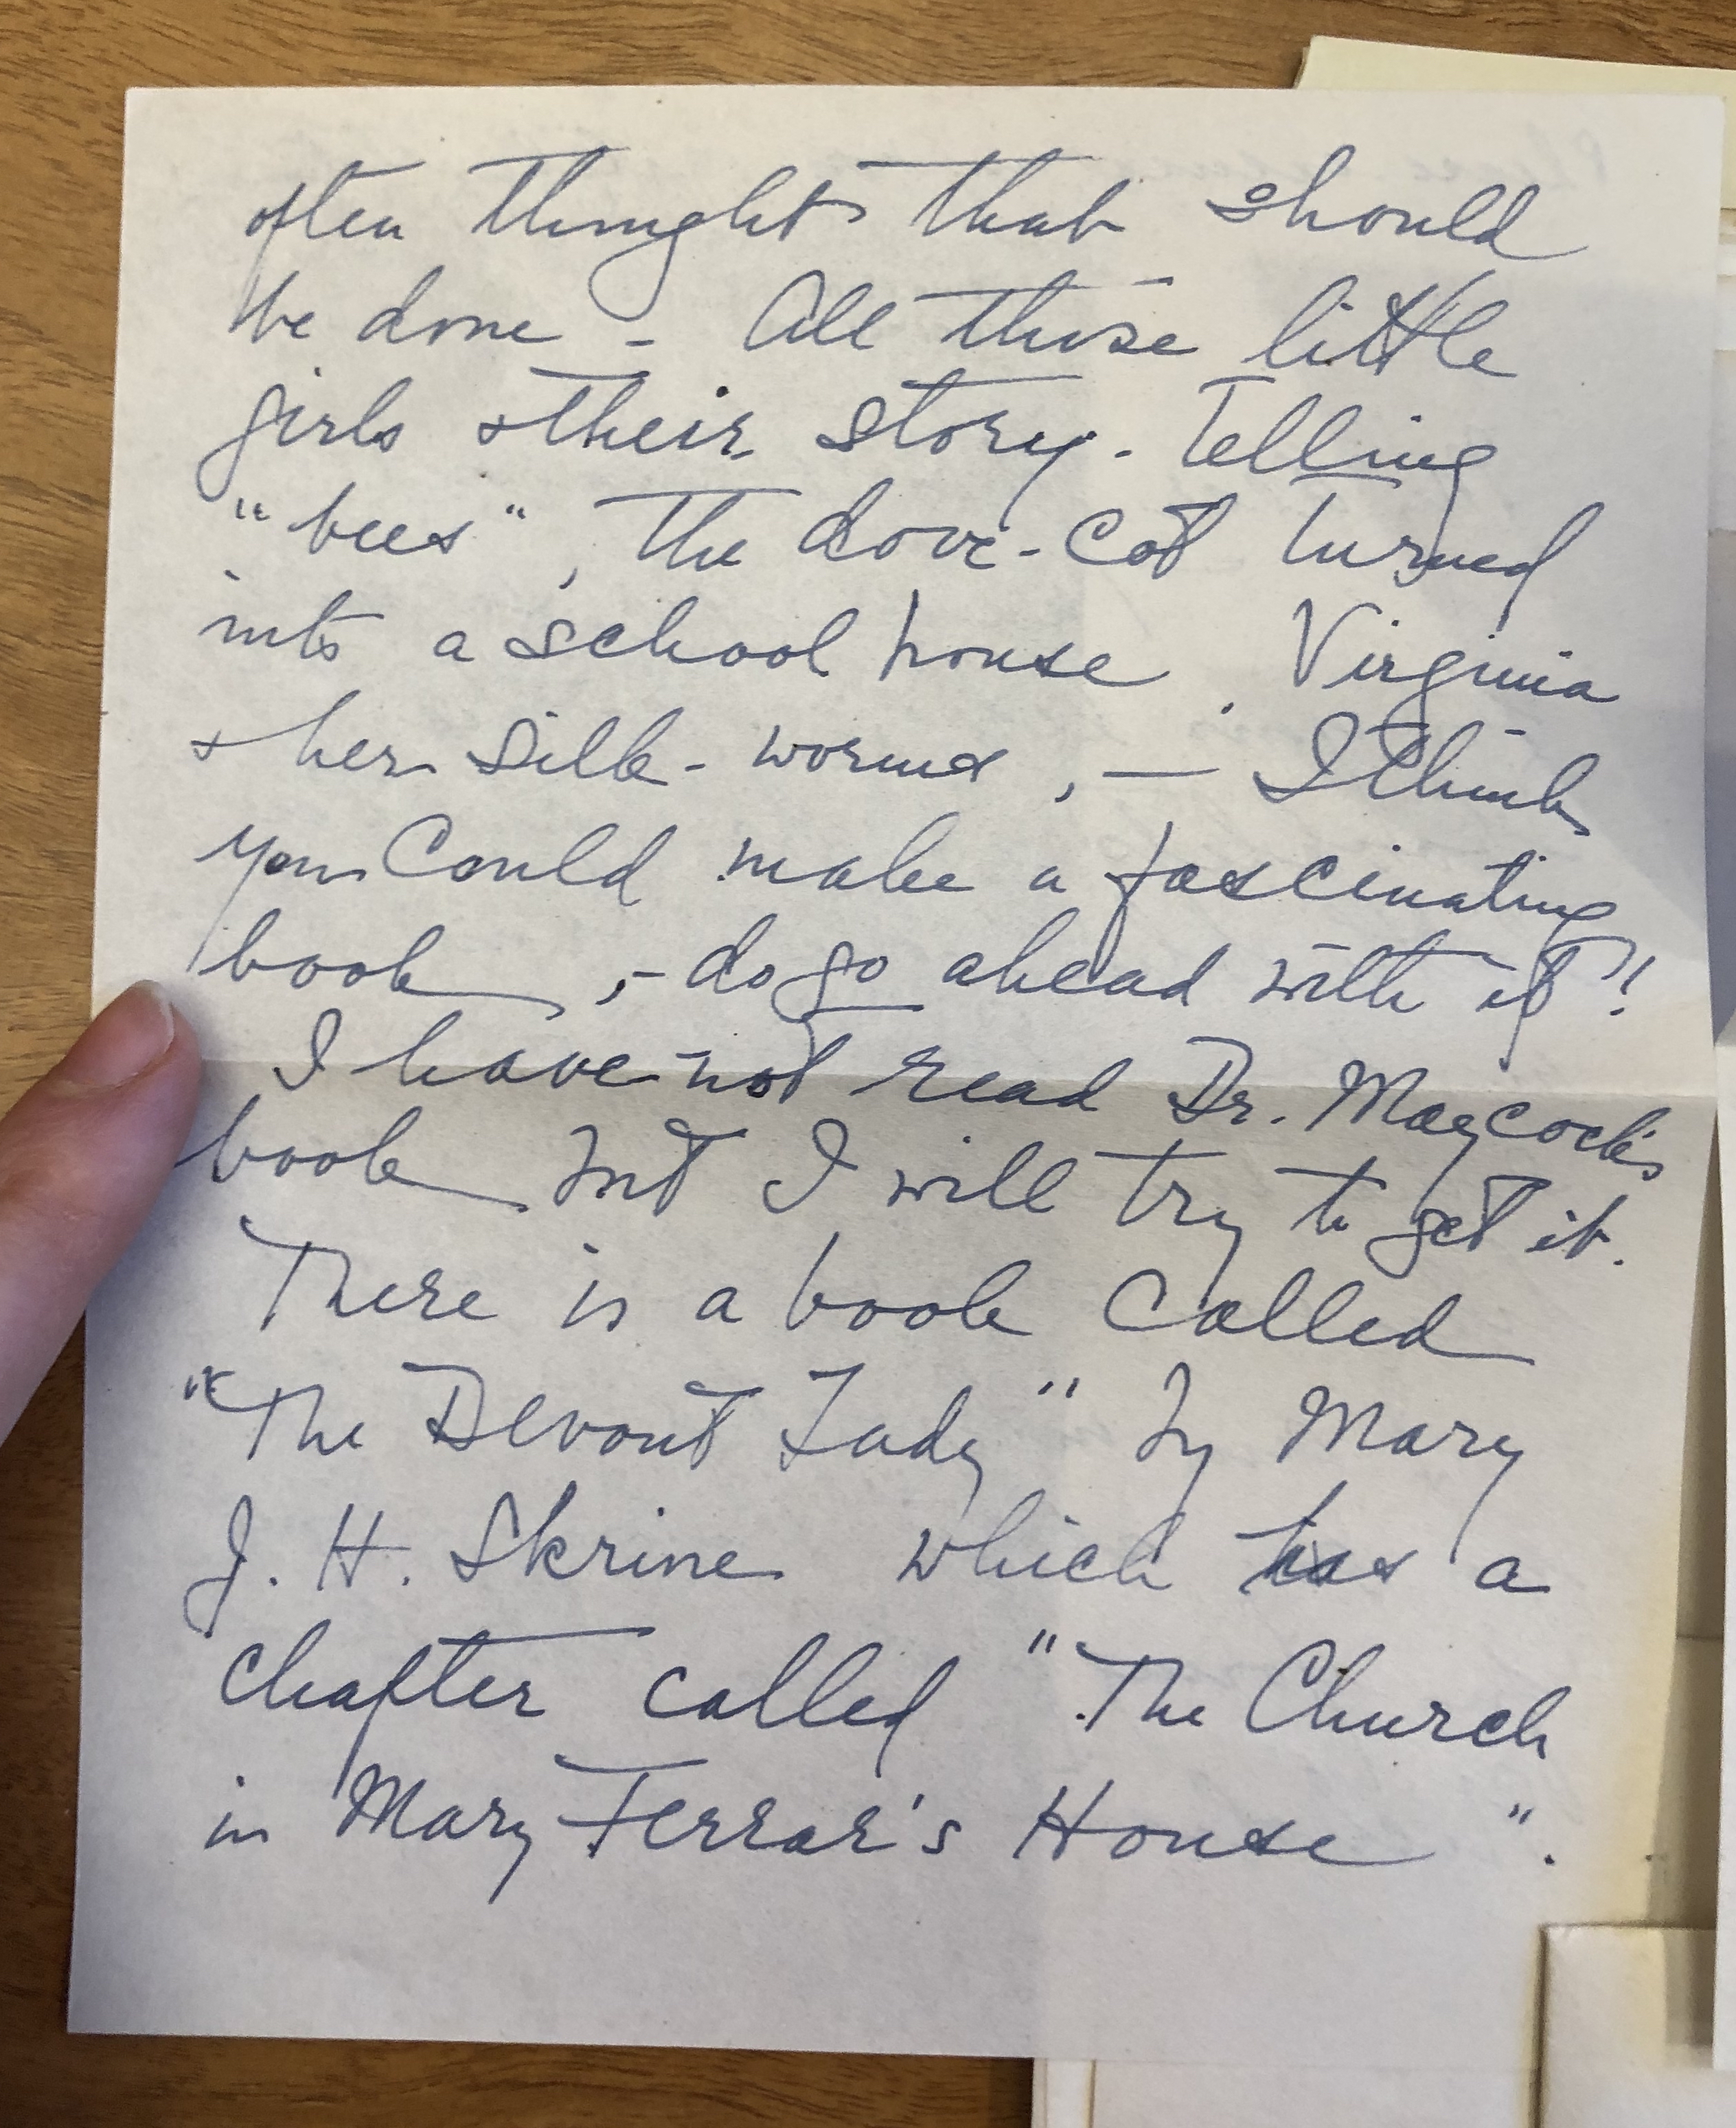 often thought that should
be done - All those little
girls & their story. Telling
"bees", the dove-cot turned
into a school house, Virginia
& her silk-worms, — I think
you could make a fascinating
book, - do go ahead with it!
I have not read Dr. Maycock's
book but I will try to get it.
There is a book called
"The Devout Lady" by Mary
J. H. Skrine which has a
chapter called "The Church
in Mary Ferrar's House".